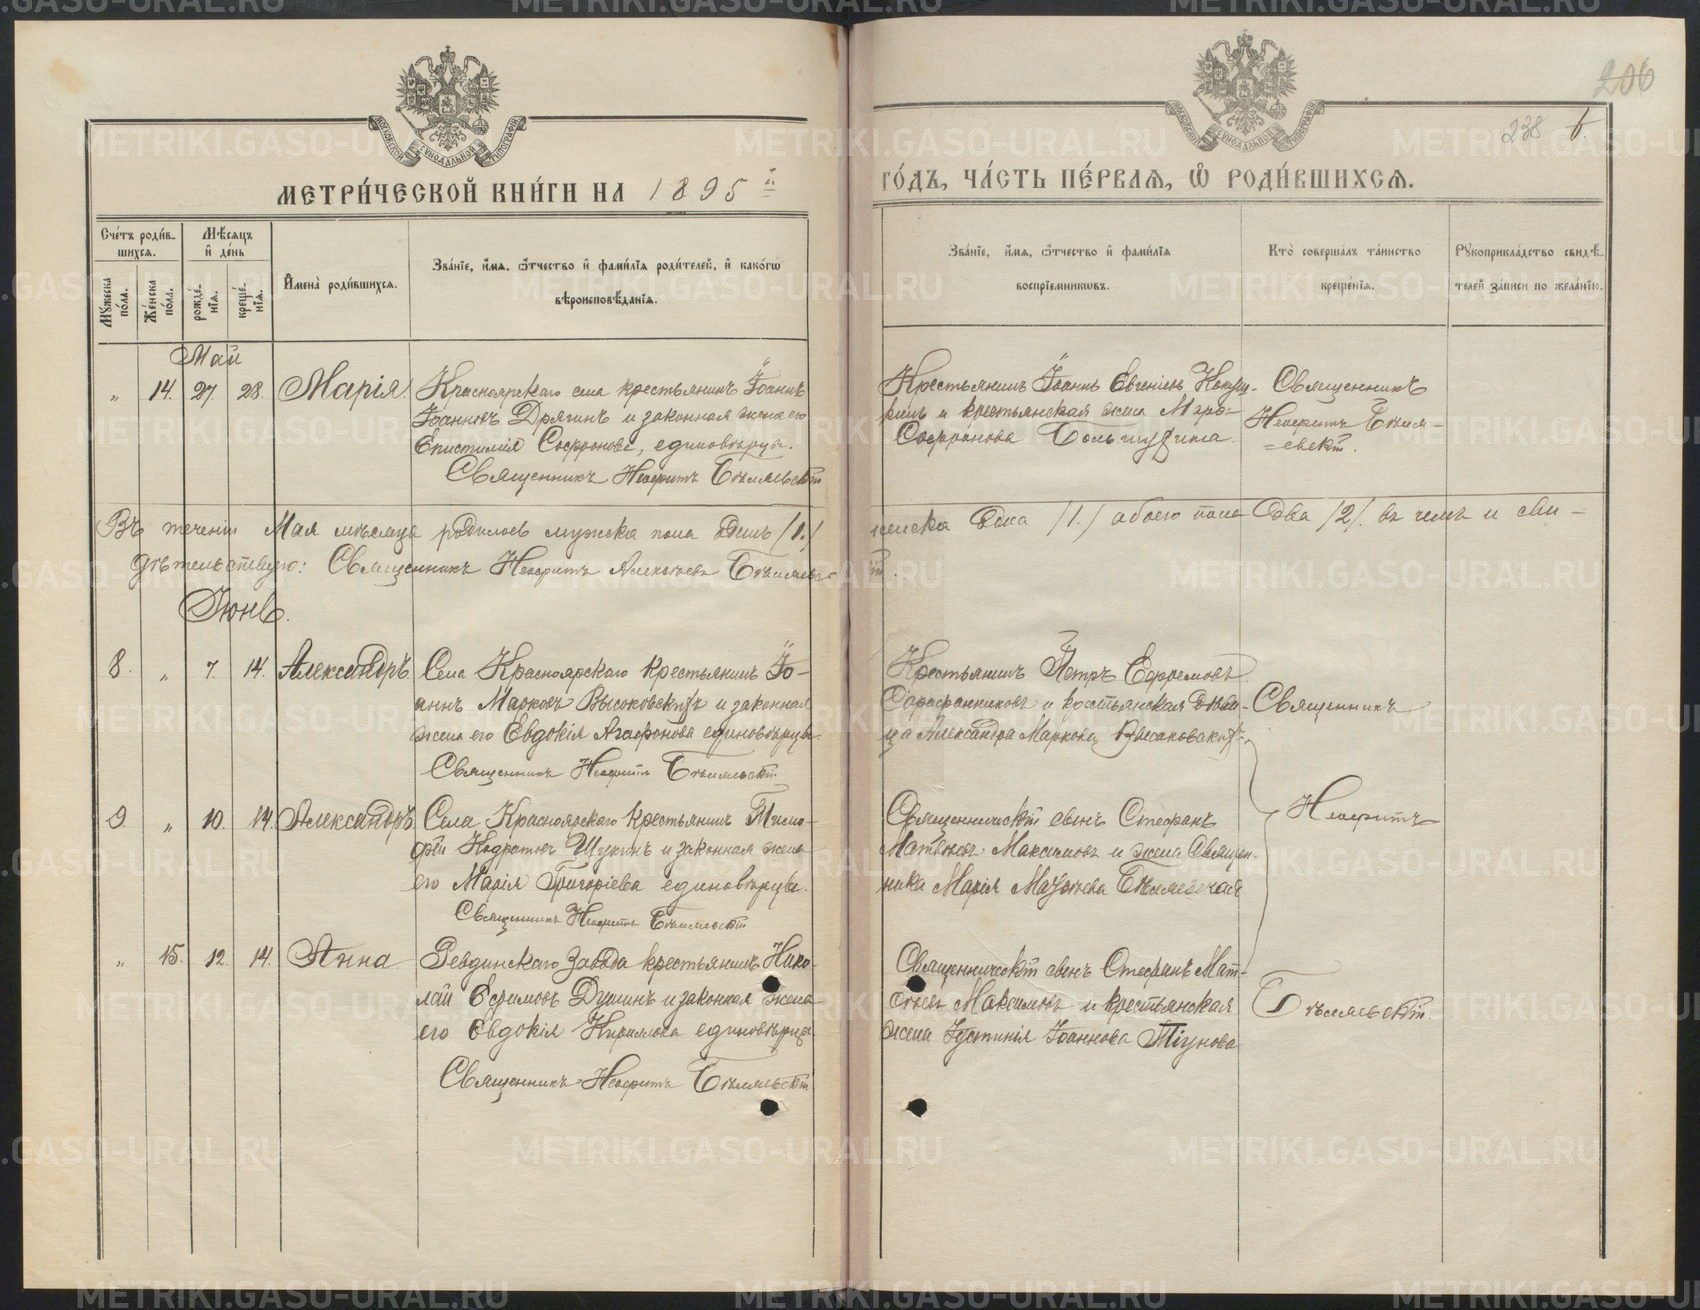 206
238
МОСКОВСКОЙ СѴНОДАЛЬНОЙ ТИПОГРАФІИ
МЕТРИ́ЧЕСКОЙ КНИ́ГИ НА 1895 й
ГО́ДЪ, ЧА́СТЬ ПЕ́РВАѦ, Ѡ҆ РОДИ́ВШИХСѦ.
Сче́тъ роди́в-
шихсѧ.
Мꙋжеска
по́ла.
Же́нска
по́ла.
Мѣ́сѧцъ
и҆ де́нь
рожде́-
нїѧ.
креще́-
нїѧ.
И҆мена̀ роди́вшихсѧ.
Зва́нїе, и҆́мѧ, ѻ҆́тчество и҆ фами́лїѧ роди́телей, и҆ како́гѡ
вѣроисповѣ́данїѧ.
Зва́нїе, и҆́мѧ, ѻ҆́тчество и҆ фами́лїѧ
воспрїе́мникѡвъ.
Кто̀ соверша́лъ та́инство
креще́нїѧ.
Рꙋкоприкла́дство свидѣ́-
телей за́писи по жела́нїю.
Май
„ 14. 27. 28. Марія.
Красноярскаго села крестьянинъ Іоаннъ
Іоанновъ Дрягинъ и законная жена его
Епистимія Софронова, единовѣрцы.
Священникъ Неофитъ Бѣляевскій
Крестьянинъ Іоаннъ Евгеніевъ
и крестьянская жена
Софронова
Священникъ
Неофитъ Бѣляе-
=вскій.
Въ теченіи Мая мѣсяца родилось мужска пола одинъ /1./
женска одна /1./ обоего пола два /2/. въ чемъ и сви-
дѣтельствую: Священникъ Неофитъ Алексѣевъ Бѣляевскій.
Іюнь.
8. „ 7. 14. Александръ.
Села Красноярскаго крестьянинъ Іо-
аннъ Марковъ Высоковскихъ и законная
жена его Евдокія Агафонова единовѣрцы.
Священникъ Неофитъ Бѣляевскій
Крестьянинъ Петръ Ефремовъ
Сарафанниковъ и крестьянская дѣви-
ца Александра Маркова Высоковских
Священникъ
9. „ 10. 14. Александръ
Села Красноярскаго крестьянинъ Тимо-
фей Кодратовъ Щукинъ и законная жена
его Марія Григоріева единовѣрцы.
Священникъ Неофитъ Бѣляевскій
Священническій сынъ Стефанъ
Матѳіевъ Максимовъ и жена Священ-
ника Марія Бѣляевская
Неофитъ
„ 15. 12. 14. Анна.
Ревдинскаго завода крестьянинъ Нико-
лай Ефимовъ Душинъ и законная жена
его Евдокія Кирилова единовѣрцы
Священникъ Неофитъ Бѣляевскій
Священническій сынъ Стефанъ Мат-
ѳіевъ Максимовъ и крестьянская
жена Іустинія Іоаннова Тіунова
Бѣляевскій.
METRIKI.GASO-URAL.RU